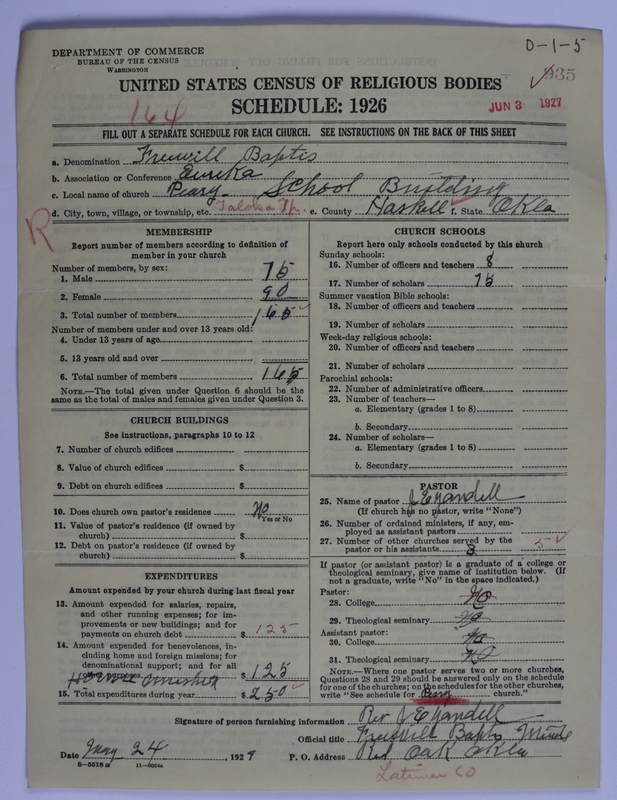 DEPARTMENT OF COMMERCE
BUREAU OF THE CENSUS
WASHINGTON
0-1-5
935
UNITED STATES CENSUS OF RELIGIOUS BODIES
164
SCHEDULE: 1926
JUN 3 1927
FILL OUT A SEPARATE SCHEDULE FOR EACH CHURCH. SEE INSTRUCTIONS ON THE BACK OF THIS SHEET
a. Denomination Freewill Baptis
b. Association or Conference Eureka
c. Local name of church Peary- School Building
d. City, town, village, or township, etc. Taloka Tp. e. County Haskell f. State Okla
R
MEMBERSHIP
Report number of members according to definition of
member in your church
Number of members, by sex:
1. Male 75
2. Female 90
3. Total number of members 165
Number of members under and over 13 years old:
4. Under 13 years of age
5. 13 years old and over
6. Total number of members 165
NOTE.—The total given under Question 6 should be the
same as the total of males and females given under Question 3.
CHURCH BUILDINGS
See instructions, paragraphs 10 to 12
7. Number of church edifices
8. Value of church edifices $
9. Debt on church edifices $
10. Does church own pastor's residence No
Yes or No
11. Value of pastor's residence (if owned by
church) $
12. Debt on pastor's residence (if owned by
church) $
EXPENDITURES
Amount expended by your church during last fiscal year
13. Amount expended for salaries, repairs,
and other running expenses; for im-
provements or new buildings; and for
payments on church debt $ 125
14. Amount expended for benevolences, in-
cluding home and foreign missions; for
denominational support; and for all
other purposes $ 125
15. Total expenditures during year $ 250
CHURCH SCHOOLS
Report here only schools conducted by this church
Sunday schools:
16. Number of officers and teachers 8
17. Number of scholars 75
Summer vacation Bible schools:
18. Number of officers and teachers
19. Number of scholars
Week-day religious schools:
20. Number of officers and teachers
21. Number of scholars
Parochial schools:
22. Number of administrative officers
23. Number of teachers—
a. Elementary (grades 1 to 8)
b. Secondary
24. Number of scholars—
a. Elementary (grades 1 to 8)
b. Secondary
PASTOR
25. Name of pastor J E Yandell
(If church has no pastor, write "None")
26. Number of ordained ministers, if any, em-
ployed as assistant pastors
27. Number of other churches served by the
pastor or his assistants 3 5
If pastor (or assistant pastor) is a graduate of a college or
theological seminary, give name of institution below. (If
not a graduate, write "No" in the space indicated.)
Pastor:
28. College No
29. Theological seminary No
Assistant pastor:
30. College No
31. Theological seminary No
NOTE.—Where one pastor serves two or more churches,
Questions 28 and 29 should be answered only on the schedule
for one of the churches; on the schedules for the other churches,
write "See schedule for church."
Signature of person furnishing information Rev J E Yandell
Official title Freewill Baptis
Date May 24, 1927 P. O. Address Red Oak Okla
8-5518a 11-4024a
Latimer Co